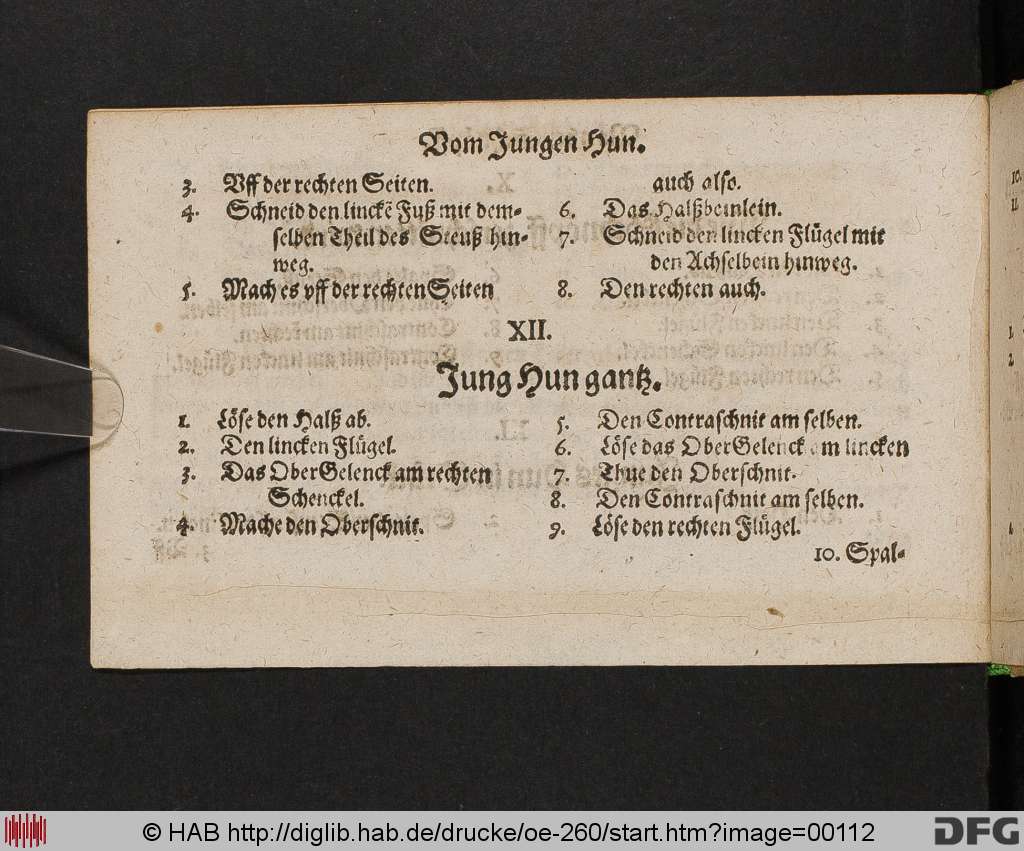 Vom Jungen Hun.
3. Vff der rechten Seiten.
4. Schneid den linckẽ Fuß mit dem-
selben Theil des Steuß hin-
weg.
5. Mach es vff der rechten Seiten
auch also.
6. Das Halßbeinlein.
7. Schneid den lincken Flügel mit
den Achselbein hinweg.
8. Den rechten auch.
XII.
Jung Hun gantz.
1. Löse den Halß ab.
2. Den lincken Flügel.
3. Das OberGelenck am rechten
Schenckel.
4. Mache den Oberschnit.
5. Den Contraschnit am selben.
6. Löse das OberGelenck am lincken
7. Thue den Oberschnit.
8. Den Contraschnit am selben.
9. Löse den rechten Flügel.
10. Spal-
© HAB http://diglib.hab.de/drucke/oe-260/start.htm?image=00112
DFG